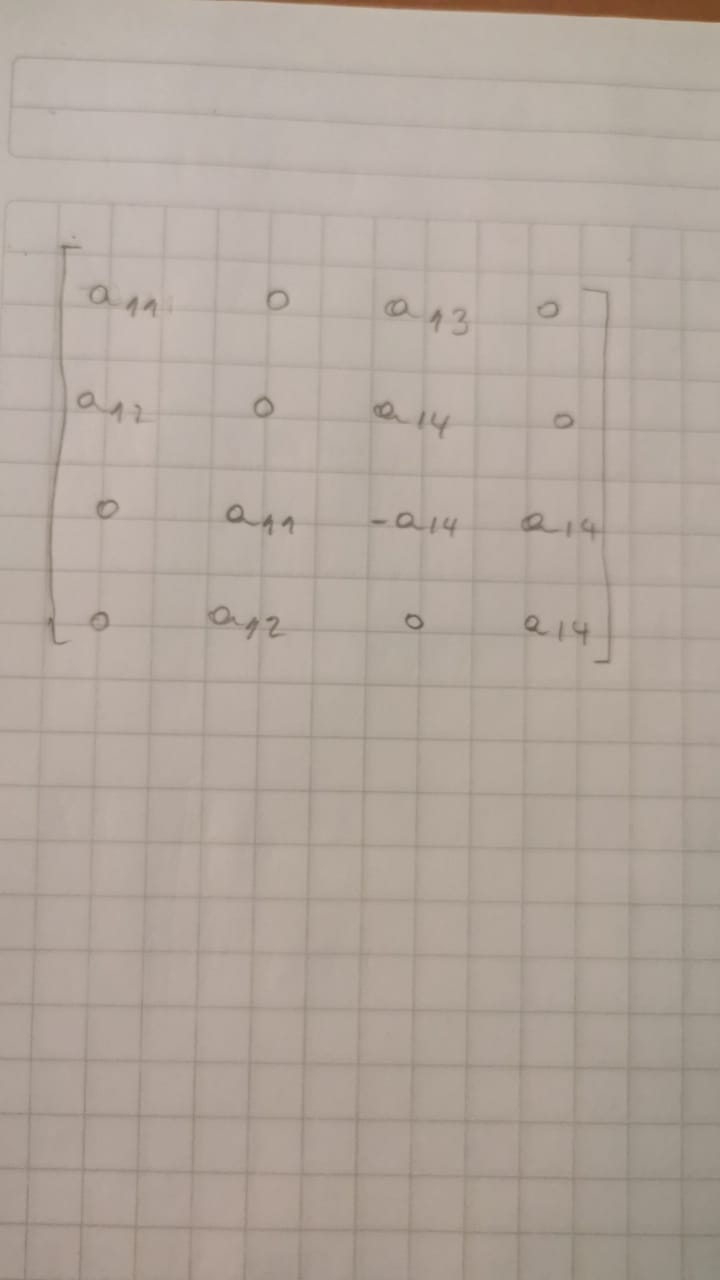 a11 0 a13 0
a12 0 a14 0
0 a11 -a14 a14
0 a12 0 a14